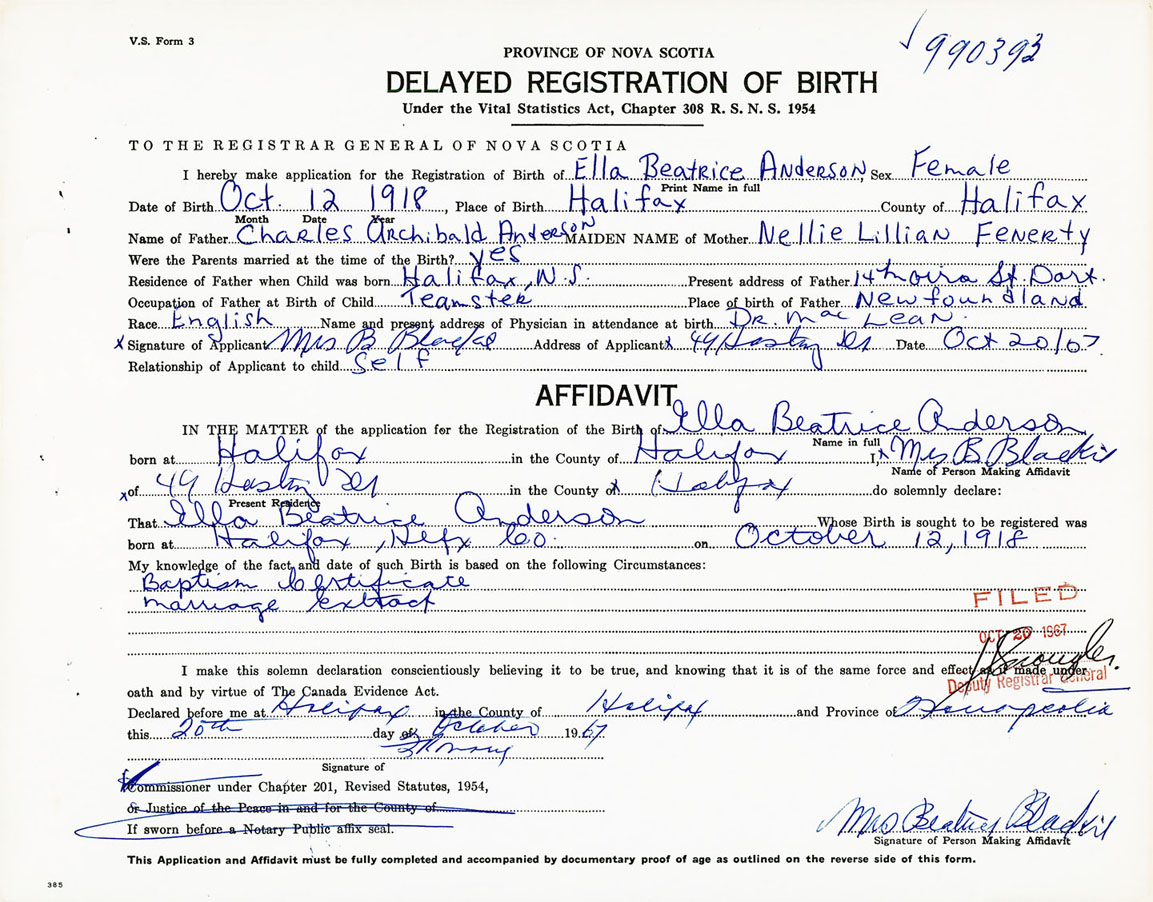 V.S. Form 3
990393
PROVINCE OF NOVA SCOTIA
DELAYED REGISTRATION OF BIRTH
Under the Vital Statistics Act, Chapter 308 R. S. N. S. 1954
TO THE REGISTRAR GENERAL OF NOVA SCOTIA
I hereby make application for the Registration of Birth of Ella Beatrice Anderson, Sex Female
Print Name in full
Date of Birth Oct. 12 1918, Place of Birth Halifax County of Halifax
Month Date Year
Name of Father Charles Archibald Anderson MAIDEN NAME of Mother Nellie Lillian Fenerty
Were the Parents married at the time of the Birth? yes
Residence of Father when Child was born Halifax, N.S. Present address of Father 14 Moira St. Dart.
Occupation of Father at Birth of Child Teamster Place of birth of Father Newfoundland
Race English Name and present address of Physician in attendance at birth Dr. Mac Lean.
x Signature of Applicant Mrs B Address of Applicant x 44 Date Oct 20/67
Relationship of Applicant to child Self
AFFIDAVIT
IN THE MATTER of the application for the Registration of the Birth of Ella Beatrice Anderson
Name in full
born at Halifax in the County of Halifax I, x Mrs B Blackie
Name of Person Making Affidavit
x of 44 in the County of x Halifax do solemnly declare:
Present Residence
That Ella Beatrice Anderson Whose Birth is sought to be registered was
born at Halifax, Hfx Co. on October 12, 1918
My knowledge of the fact and date of such Birth is based on the following Circumstances:
Baptism Certificate
marriage extract
FILED
OCT 20 1967
I make this solemn declaration conscientiously believing it to be true, and knowing that it is of the same force and effect as if made under
Deputy Registrar General
oath and by virtue of The Canada Evidence Act.
Declared before me at Halifax in the County of Halifax and Province of Nova Scotia
this 20th day of October 1967
Signature of
Commissioner under Chapter 201, Revised Statutes, 1954,
or Justice of the Peace in and for the County of
If sworn before a Notary Public affix seal.
Mrs Beatrice Blackie
Signature of Person Making Affidavit
This Application and Affidavit must be fully completed and accompanied by documentary proof of age as outlined on the reverse side of this form.
385